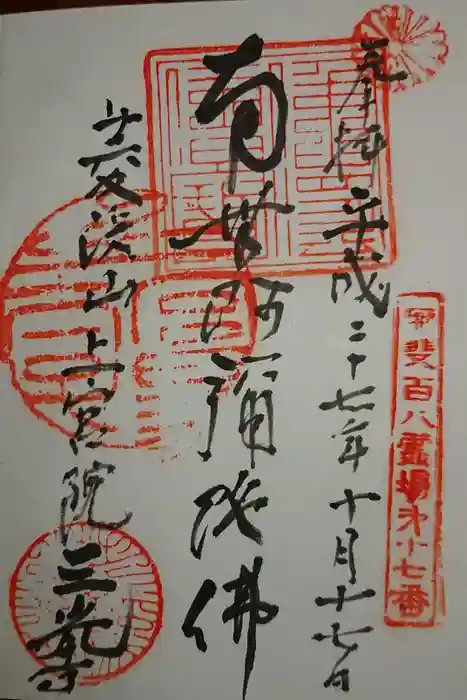 奉拝 平成二十七年十月十七日
甲斐百八霊場第十七番
南無阿彌陀佛
菱渓山上宮院三光寺